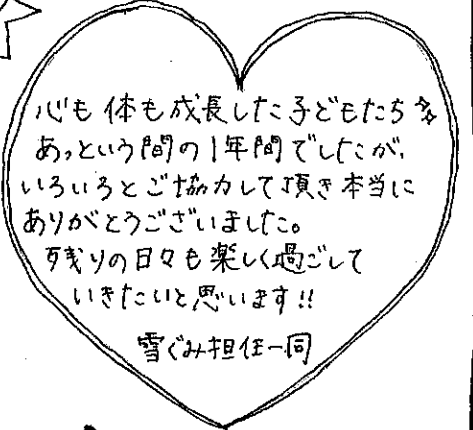 心も体も成長した子どもたち
あっという間の1年間でしたが、
いろいろとご協力して頂き本当に
ありがとうございました。
残りの日々も楽しく過ごして
いきたいと思います!!
雪ぐみ担任一同